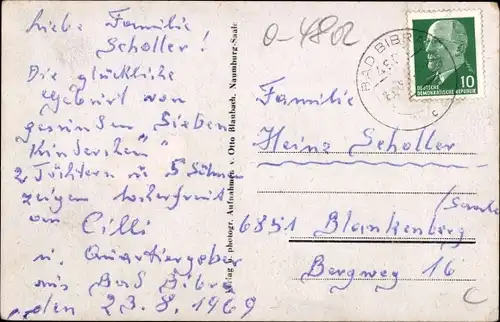 Liebe Familie
Scholler!
Die glückliche
Geburt von
gesunden "Sieben
Kinderchen"
2 Töchtern u 5 Söhne
zeigen hocherfreut
an Cilli
u. Quartiergeber
aus Bad Bibra
, den 23.8.1969
Verlag u. photogr. Aufnahmen v. Otto Blaubach, Naumburg-Saale
0-4802
BAD BIBRA
c
DEUTSCHE
DEMOKRATISCHE REPUBLIK
10
Familie
Heinz Scholler
(Saale
6851 Blankenberg
Bergweg 16
C